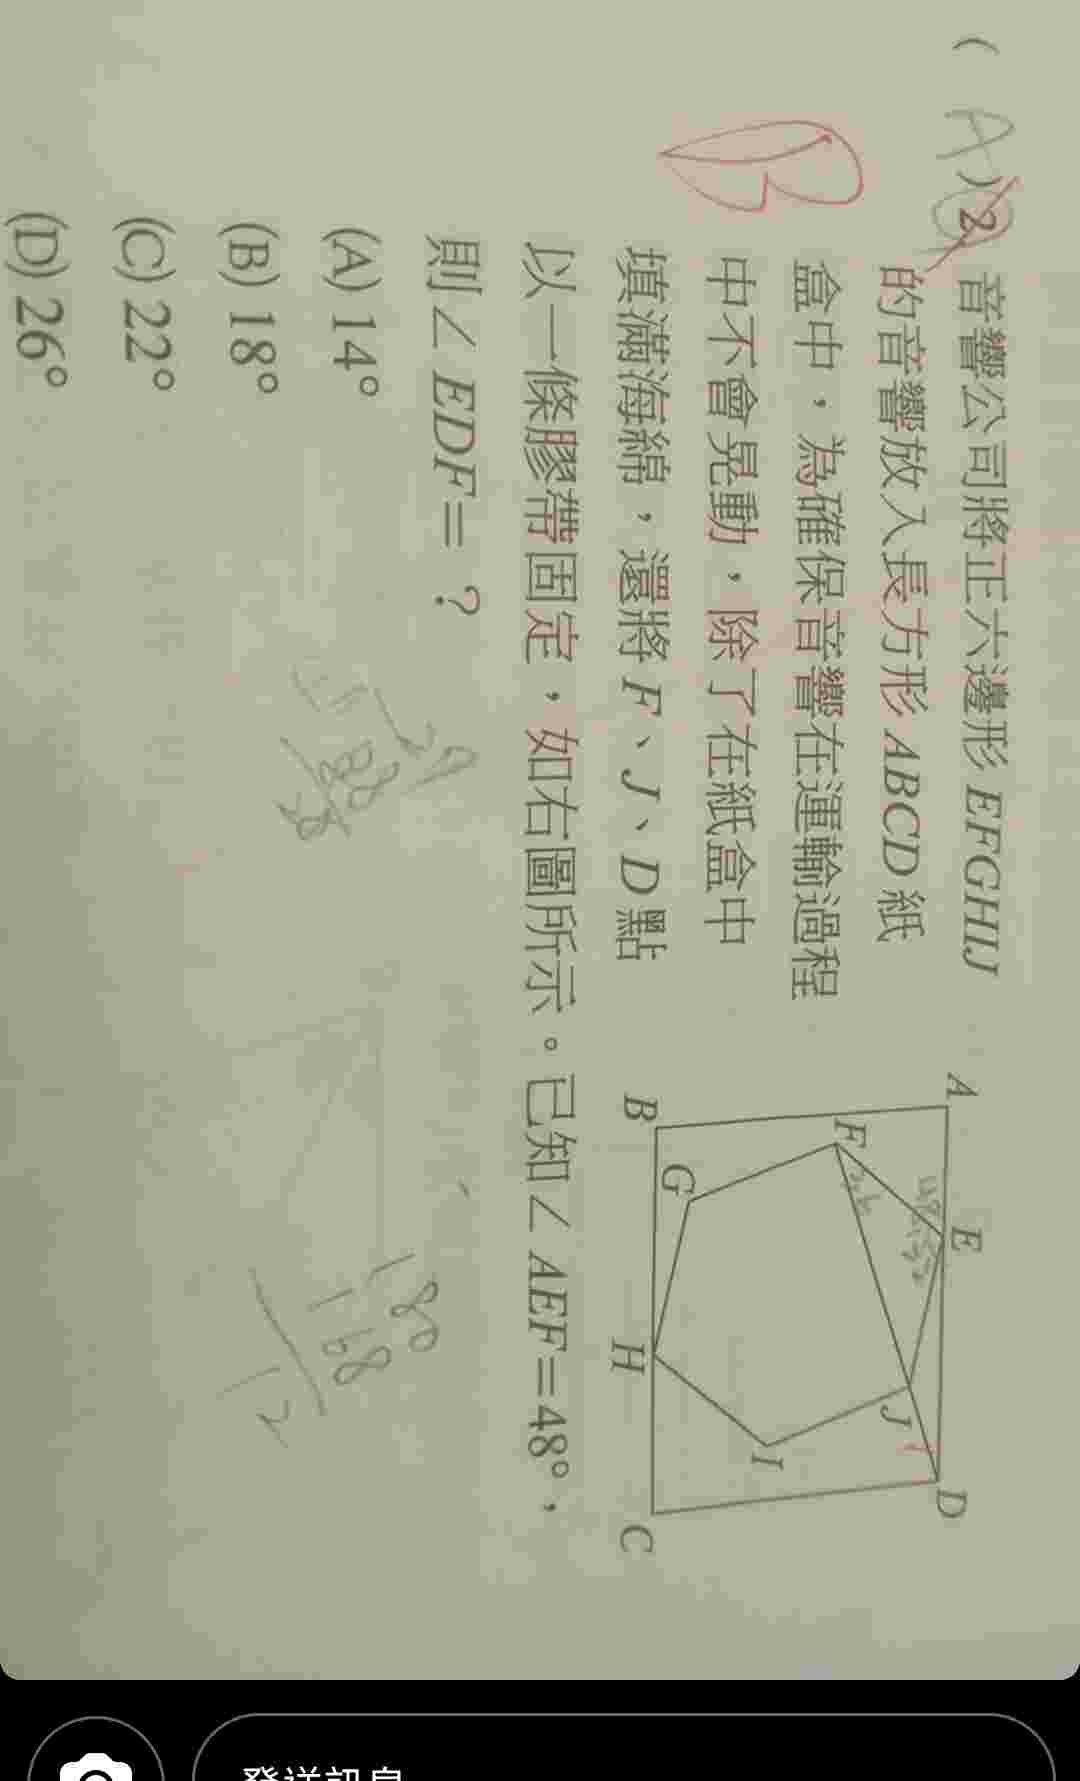 ( A ) 2. 音響公司將正六邊形 EFGHIJ
的音響放入長方形 ABCD 紙
盒中，為確保音響在運輸過程
中不會晃動，除了在紙盒中
填滿海綿，還將 F、J、D 點
以一條膠帶固定，如右圖所示。已知∠AEF=48°，
則∠EDF=？
(A) 14°
(B) 18°
(C) 22°
(D) 26°
B
A
E
D
F
J
G
I
B
H
C
48
180
168
12
發送訊息